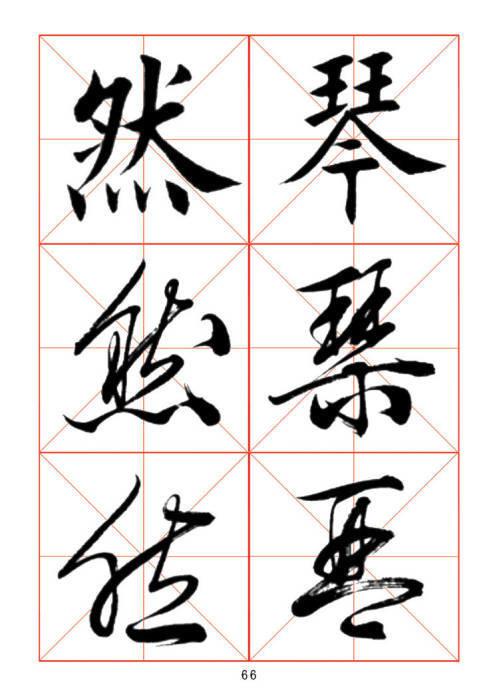 琴琴琴
然然然
66